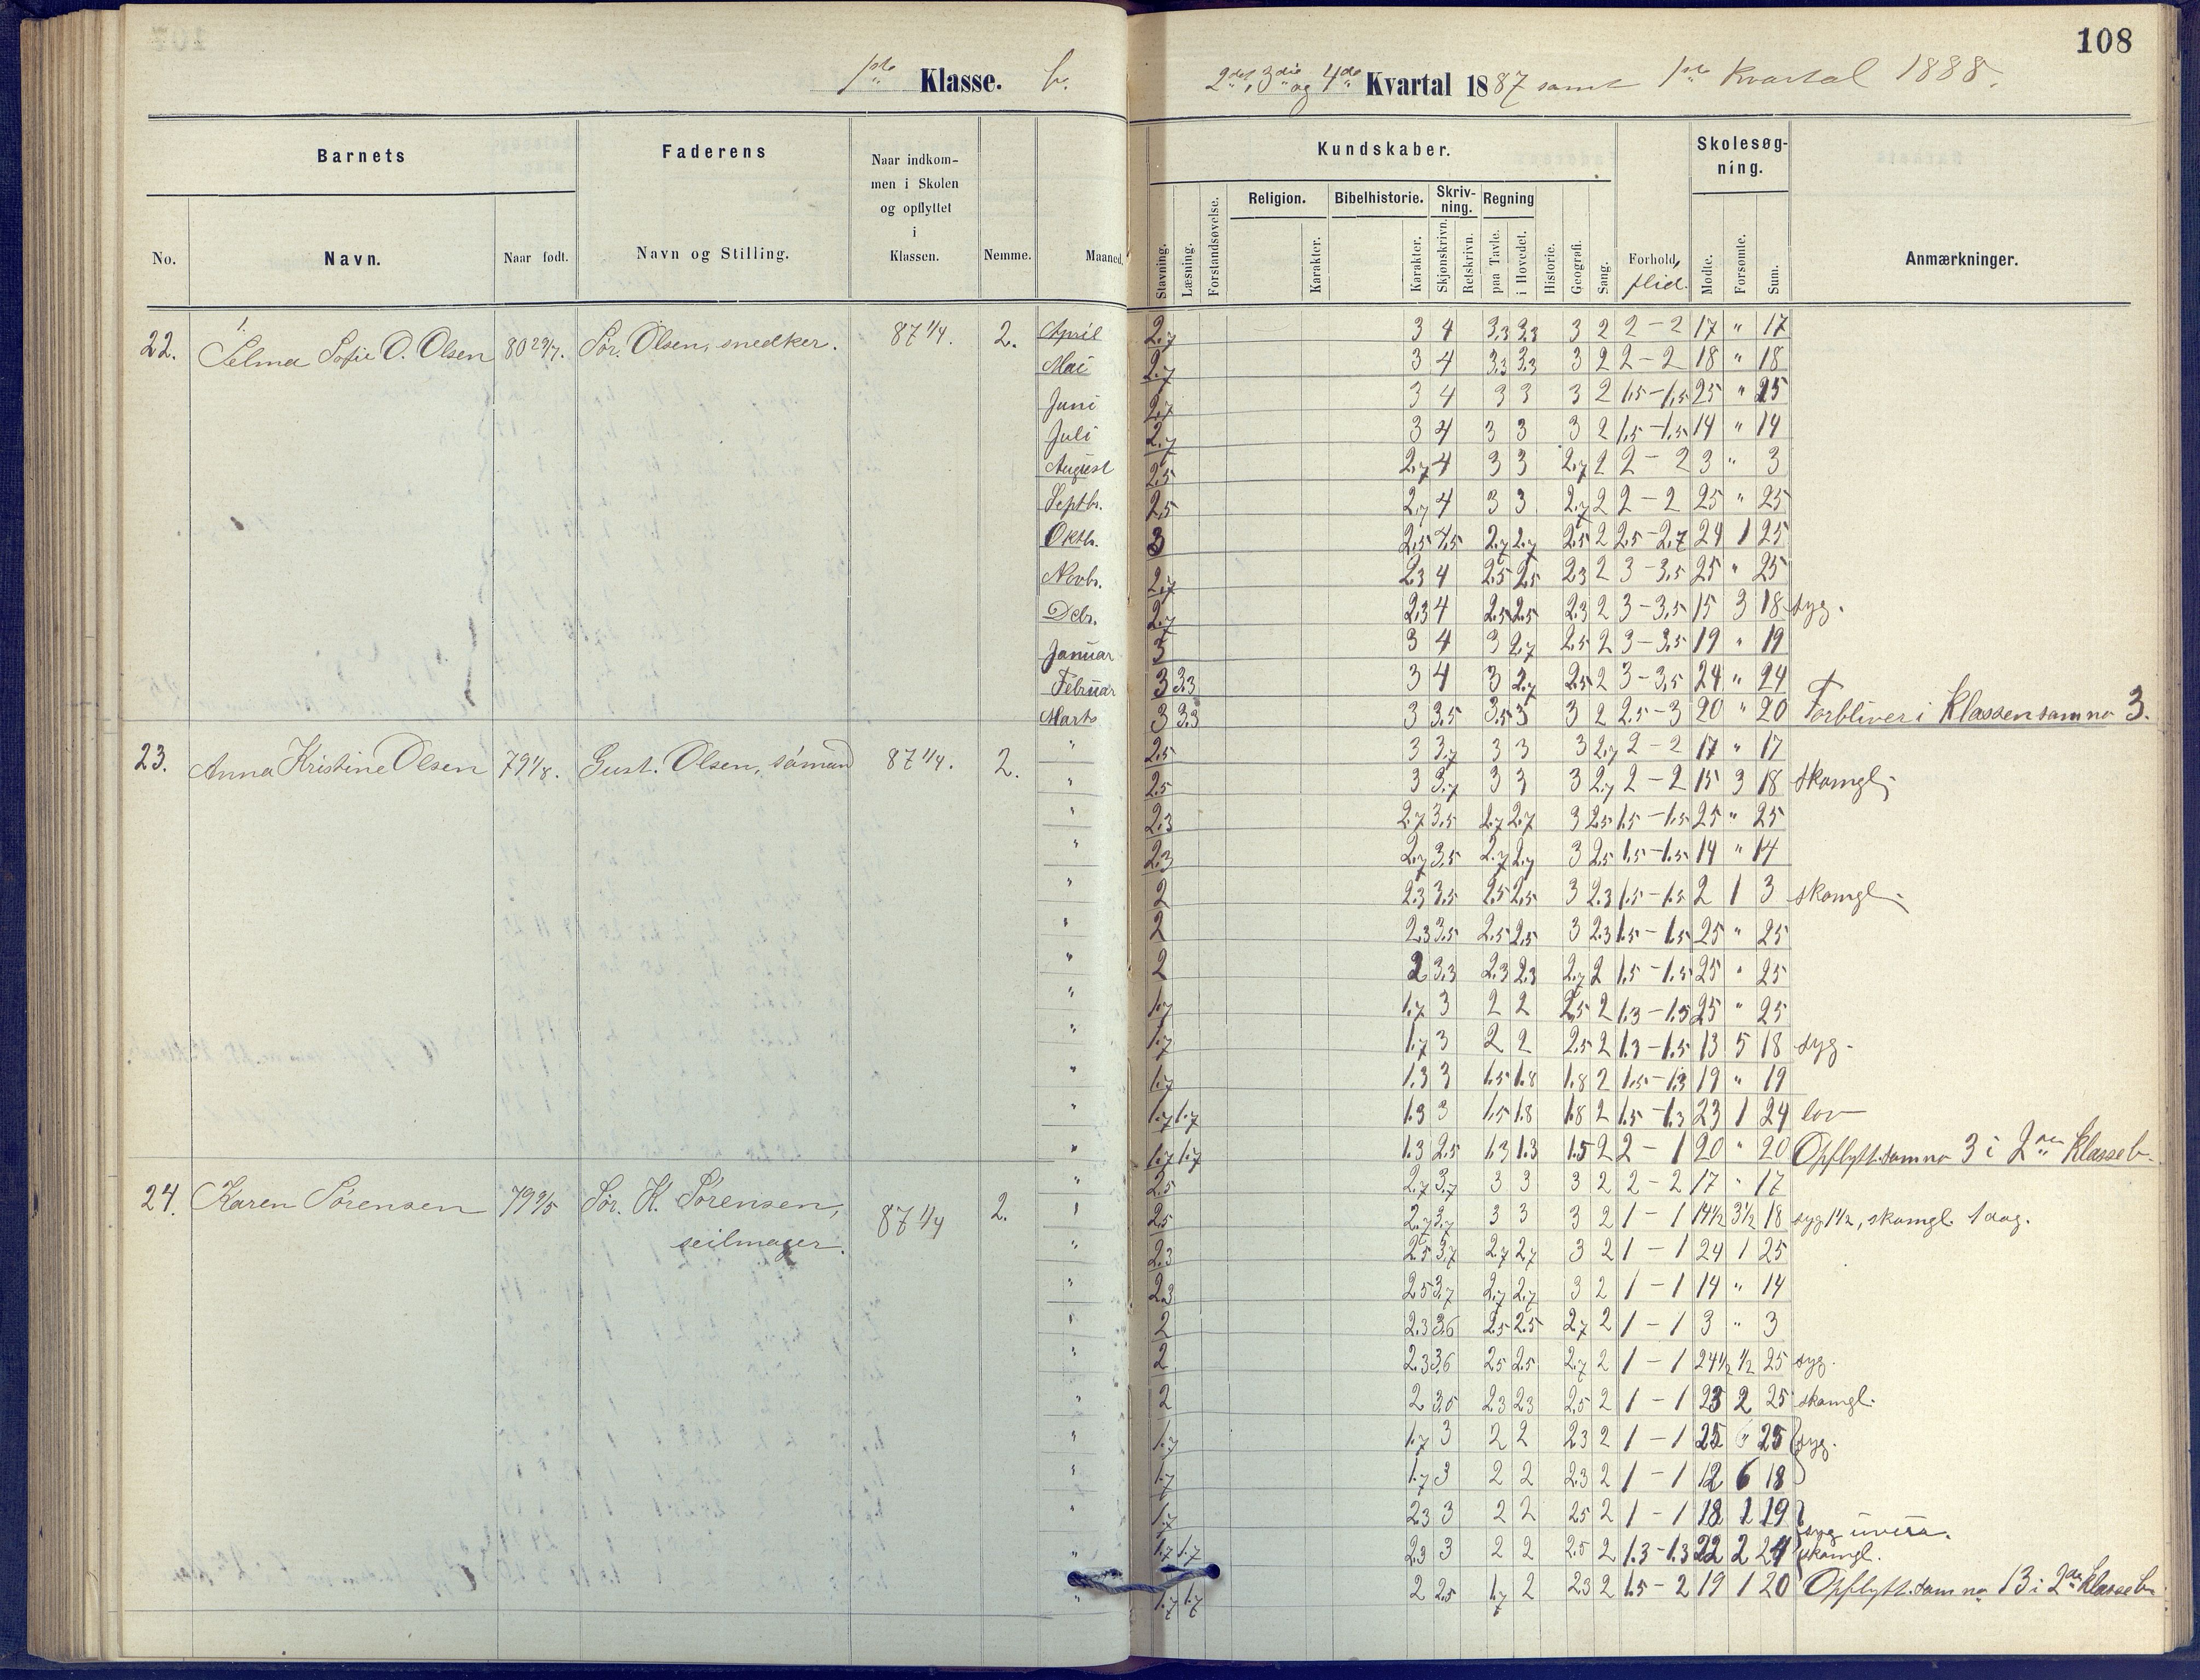 108
1ste Klasse. b.
2det, 3die og 4de Kvartal 1887 samt 1ste Kvartal 1888.
Barnets
Faderens
Naar indkom-
men i Skolen
og opflyttet
i
Klassen.
Kundskaber.
Skolesøg-
ning.
Religion. Bibelhistorie. Skriv-
ning. Regning
No. Navn. Naar født. Navn og Stilling. Nemme. Maaned.
Slavning. Læsning. Forstandsøvelse. Karakter. Karakter. Skjønskrivn. Retskrivn. paa Tavle. i Hovedet. Historie. Geografi. Sang. Forhold, flid. Mødte. Forsømte. Sum. Anmærkninger.
22. Selma Sofie O. Olsen 80 29/7. Sør. Olsen, snedker. 87 1/4. 2.
April 2.7 3 4 3.3 3.3 3 2 2 - 2 17 " 17
Mai 2.7 3 4 3.3 3.3 3 2 2 - 2 18 " 18
Juni 2.7 3 4 3 3 3 2 1.5 - 1.5 25 " 25
Juli 2.7 3 4 3 3 3 2 1.5 - 1.5 14 " 14
August 2.5 2.7 4 3 3 2.7 2 2 - 2 3 " 3
Septbr. 2.5 2.7 4 3 3 2.7 2 2 - 2 25 " 25
Oktbr. 3 2.5 4.5 2.7 2.7 2.5 2 2.5 - 2.7 24 1 25
Novbr. 2.7 2.3 4 2.5 2.5 2.3 2 3 - 3.5 25 " 25
Dcbr. 2.7 2.3 4 2.5 2.5 2.3 2 3 - 3.5 15 3 18 syg.
Januar 3 3 4 3 2.7 2.5 2 3 - 3.5 19 " 19
Februar 3 3.3 3 4 3 2.7 2.5 2 3 - 3.5 24 " 24
Marts 3 3.3 3 3.5 3.5 3 3 2 2.5 - 3 20 " 20 Forbliver i Klassen som no 3.
23. Anna Kristine Olsen 79 1/8. Gust. Olsen, sømand 87 1/4. 2.
" 2.5 3 3.7 3 3 3 2.7 2 - 2 17 " 17
" 2.5 3 3.7 3 3 3 2.7 2 - 2 15 3 18 skomgl.
" 2.3 2.7 3.5 2.7 2.7 3 2.5 1.5 - 1.5 25 " 25
" 2.3 2.7 3.5 2.7 2.7 3 2.5 1.5 - 1.5 14 " 14
" 2 2.3 3.5 2.5 2.5 3 2.3 1.5 - 1.5 2 1 3 skomgl.
" 2 2.3 3.5 2.5 2.5 3 2.3 1.5 - 1.5 25 " 25
" 2 2 3.3 2.3 2.3 2.7 2 1.5 - 1.5 25 " 25
" 1.7 1.7 3 2 2 2.5 2 1.3 - 1.5 25 " 25
" 1.7 1.7 3 2 2 2.5 2 1.3 - 1.5 13 5 18 syg.
" 1.7 1.3 3 1.5 1.8 1.8 2 1.5 - 1.3 19 " 19
" 1.7 1.7 1.3 3 1.5 1.8 1.8 2 1.5 - 1.3 23 1 24 lov
" 1.7 1.7 1.3 2.5 1.3 1.3 1.5 2 2 - 1 20 " 20 Opflytt. som no 3 i 2den Klasse b.
24. Karen Sørensen 79 9/5 Sør. K. Sørensen, seilmager. 87 1/4 2.
" 2.5 2.7 3.7 3 3 3 2 2 - 2 17 " 17
" 2.5 2.7 3.7 3 3 3 2 1 - 1 14 1/2 3 1/2 18 syg 1 1/2, skomgl. 1 dag.
" 2.3 2.5 3.7 2.7 2.7 3 2 1 - 1 24 1 25
" 2.3 2.5 3.7 2.7 2.7 3 2 1 - 1 14 " 14
" 2 2.3 3.6 2.5 2.5 2.7 2 1 - 1 3 " 3
" 2 2.3 3.6 2.5 2.5 2.7 2 1 - 1 24 1/2 1/2 25 syg.
" 2 2 3.5 2.3 2.3 2.5 2 1 - 1 23 2 25 skomgl.
" 1.7 1.7 3 2 2 2.3 2 1 - 1 25 " 25 syg.
" 1.7 1.7 3 2 2 2.3 2 1 - 1 12 6 18
" 1.7 2.3 3 2 2 2.5 2 1 - 1 18 1 19 syg
" 1.7 1.7 2.3 3 2 2 2.5 2 1.3 - 1.3 22 2 24 skomgl.
" 1.7 1.7 2 2.5 1.7 2 2.3 2 1.5 - 2 19 1 20 Opflytt. som no 13 i 2den Klasse b.